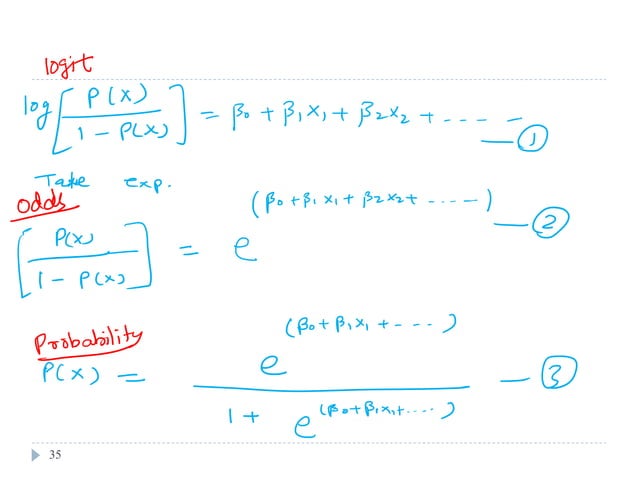 logit
log[P(X) / 1 - P(X)] = β0 + β1x1 + β2x2 + ----- — ①
Take exp.
Odds
[P(X) / 1 - P(X)] = e^(β0 + β1x1 + β2x2 + -----) — ②
Probability
P(X) = e^(β0 + β1x1 + ----) / 1 + e^(β0 + β1x1 + ....) — ③
35